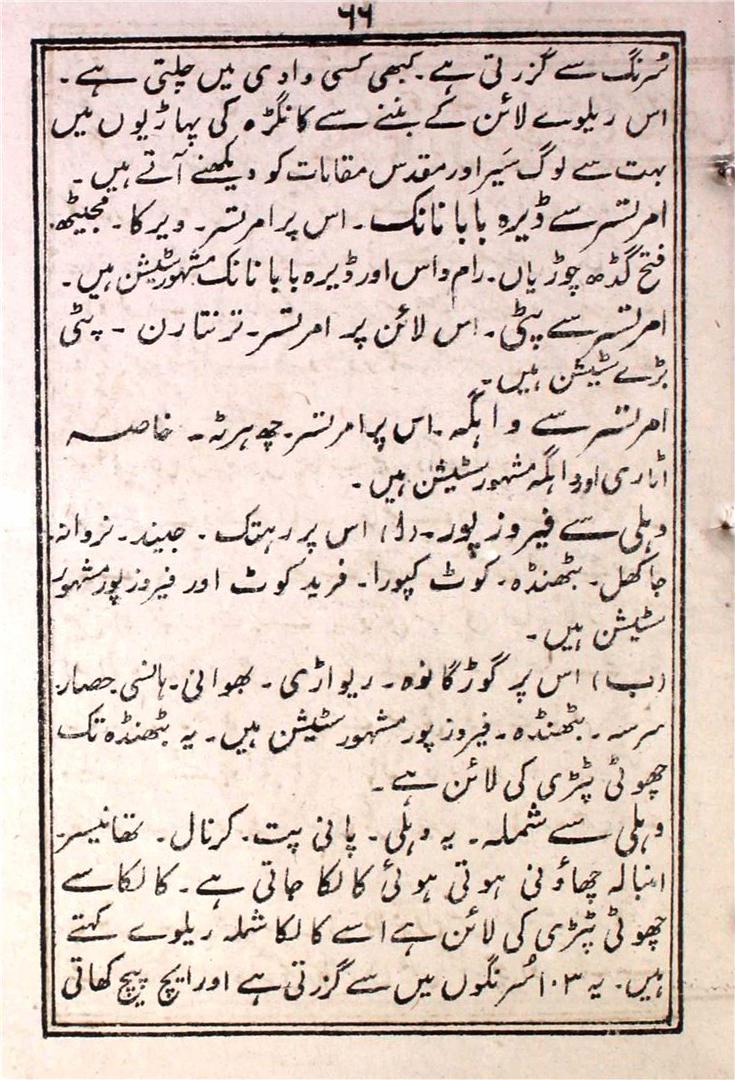 ۶۶
سُرنگ سے گزرتی ہے۔ کبھی کسی وادی میں چلتی ہے۔
اس ریلوے لائن کے بننے سے کانگڑہ کی پہاڑیوں میں
بہت سے لوگ سَیر اور مقدس مقامات کو دیکھنے آتے ہیں۔
امرتسر سے ڈیرہ بابا نانک۔ اس پر امرتسر۔ ویرکا۔ مجیٹھہ۔
فتح گڈھ چوڑیاں۔ رام داس اور ڈیرہ بابا نانک مشہور سٹیشن ہیں۔
امرتسر سے پٹی۔ اس لائن پر امرتسر۔ ترنتارن ۔ پٹی
بڑے سٹیشن ہیں۔
امرتسر سے واہگہ۔ اس پر امرتسر۔ چھہرٹہ۔ خاصہ
اٹاری اور واہگہ مشہور سٹیشن ہیں۔
دہلی سے فیروز پور۔ (ل) اس پر رہتک۔ جیند۔ نروانہ۔
جاکھل۔ بٹھنڈہ۔ کوٹ کپورا۔ فرید کوٹ اور فیروز پور مشہور
سٹیشن ہیں۔
(ب) اس پر گوڑگانوہ۔ ریواڑی۔ بھوانی۔ ہانسی۔ حصار۔
سرسہ۔ بٹھنڈہ۔ فیروز پور مشہور سٹیشن ہیں۔ یہ بٹھنڈہ تک
چھوٹی پٹڑی کی لائن ہے۔
دہلی سے شملہ۔ یہ دہلی۔ پانی پت۔ کرنال۔ تھانیسر۔
انبالہ چھاؤنی ہوتی ہوئی کالکا جاتی ہے۔ کالکا سے
چھوٹی پٹڑی کی لائن ہے اسے کالکا شملہ ریلوے کہتے
ہیں۔ یہ ۱۰۳ سُرنگوں میں سے گزرتی ہے اور ایچ پیچ کھاتی